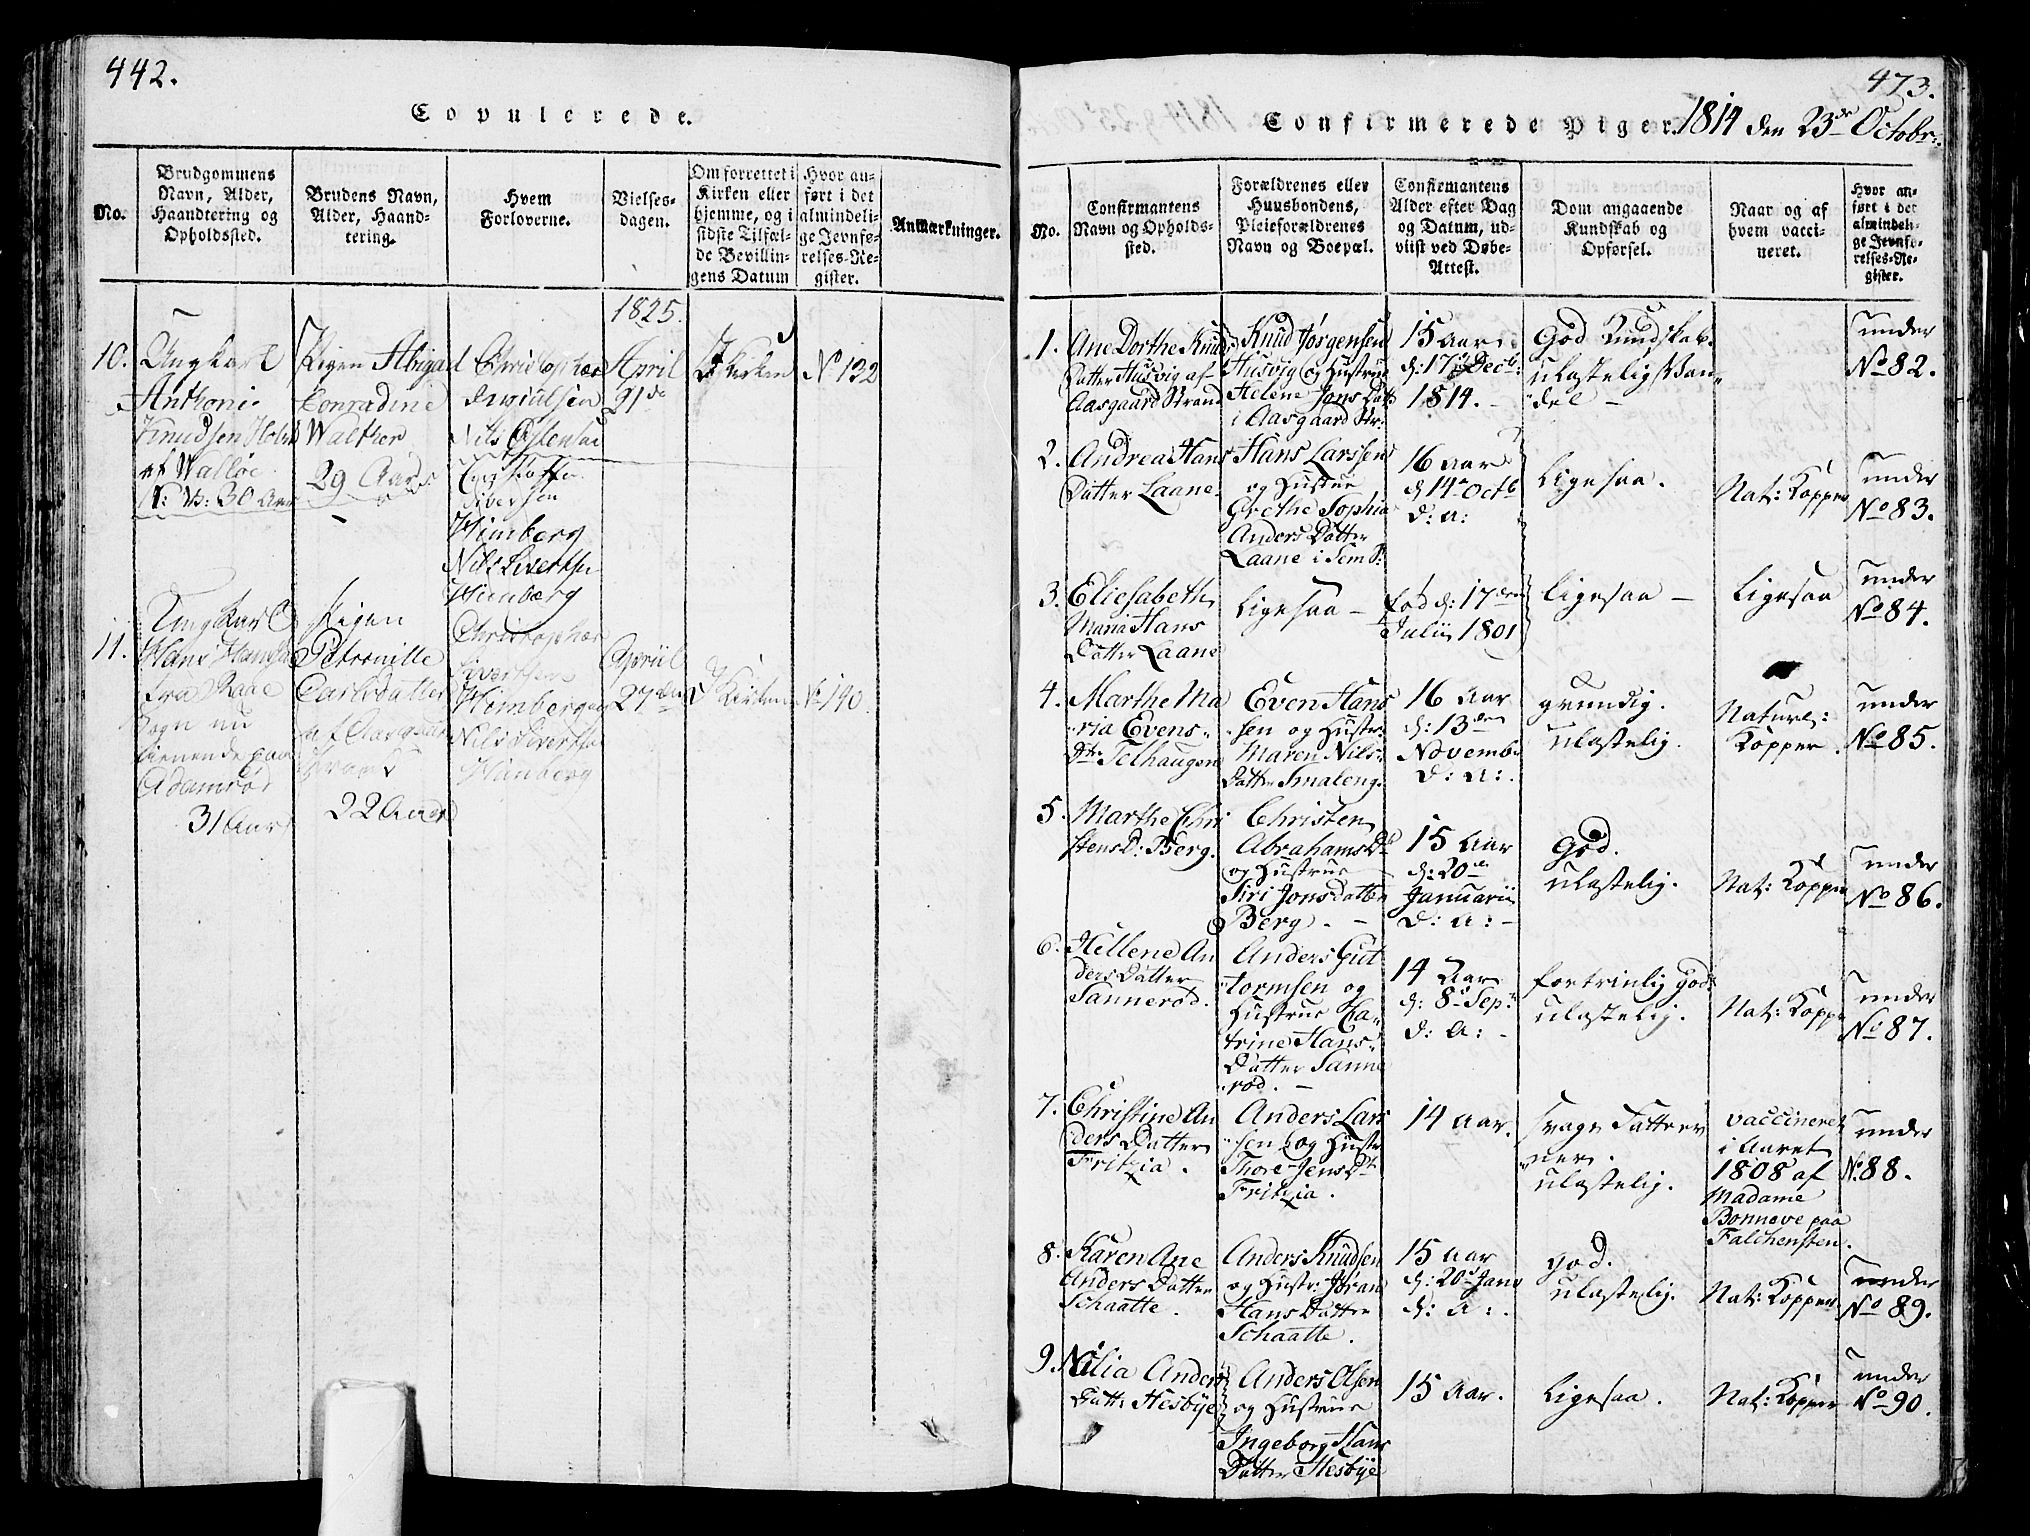 442.
Copulerede.
No.
Brudgommens
Navn, Alder,
Haandtering og
Opholdssted.
Brudens Navn,
Alder, Haand-
tering.
Hvem
Forloverne.
Vielses-
dagen.
Om forrettet i
Kirken eller
hjemme, og i
sidste Tilfæl-
de Bevillin-
gens Datum
Hvor an-
ført i det
almindeli-
ge Jevnfø-
relses-Re-
gister.
Anmærkninger.
1825.
10.
Ungkarl
Anthoni
Knudsen Holm
af Walløe
30 Aar
Pigen Abigael
Conradine
Walther
29 Aar
Christopher
Nils
Siversen
Himberg
Nils Sivertsen
Himberg
April
21de
Kirken
No 132
11.
Ungkarl
Hans Hansen
fra Raae
Sogn nu
tienende paa
Adamrød
31 Aar
Pigen
Petronille
Carlsdatter
af Aasgaard
Strand
22 Aar
Christopher
Sivertsen
Himberg og
Nils Sivertsen
Himberg
April
27de
Kirken
No 140.
473.
Confirmerede Piger. 1814 den 23de Octobr:
No.
Confirmantens
Navn og Opholds-
sted.
Forældrenes eller
Huusbondens,
Pleieforældrenes
Navn og Boepæl.
Confirmantens
Alder efter Dag
og Datum, ud-
viist ved Døbe-
Attest.
Dom angaaende
Kundskab og
Opførsel.
Naar og af
hvem vacci-
neret.
Hvor an-
ført i det
almindeli-
ge Jevnfø-
relses-Re-
gister.
1.
Ane Dorthe Knuds
Datter Husvig af
Aasgaard Strand
Knud Jørgensen
Husvig og Hustrue
Helene Jons Datt
i Aasgaard Str:
15 Aar
d: 17 Decb:
1814. -
God Kundskab.
ulastelig Van-
del -
under
No 82.
2.
Andrea Hans
Datter Laane.
Hans Larssen
og Hustrue
Grethe Sophia
Anders Datter
Laane i Sem P:
16 Aar
d 14 Octb
d: a:
Ligesaa.
Nat: Kopper
under
No 83.
3.
Eliesabeth
Maria Hans
Datter Laane
Ligesaa -
fød d: 17den
Julii 1801
Ligesaa -
Ligesaa
under
No 84.
4.
Marthe Ma
ria Evens-
Dtr Telhaugen
Even Hans
sen og Hustr:
Maren Nils-
Datter Smaleng.
16 Aar
d: 13den
Novemb:
d: a:.
grundig.
ulastelig.
Naturl:
Kopper.
under
No 85.
5.
Marthe Chri
stens D: Berg.
Christen
Abrahams
og Hustrue
Siri Jonsdatter
Berg. -
15 Aar
d: 20de
Januarii
d: a: -
God.
ulastelig.
Nat: Kopper
under
No 86.
6.
Hellene An
ders Datter
Sannerød.
Anders Gut
tormsen og
Hustrue Ca-
trine Hans-
Datter Sanne
rød. -
14 Aar
d: 8 Sep:
d: a: -
fortrinlig God:
ulastelig.
Nat: Kopper
under
No 87.
7.
Christine An
ders Datter
Fritzia.
Anders Lars
sen og Hustr
Thore Jens Dt
Fritzia.
14 Aar.
svage Fatteev
ner.
ulastelig.
vaccineret
i Aaret
1808 af
Madame
Bonneve paa
Falchensten.
under
No 88.
8.
Karen Ane
Anders Datter
Schaatte.
Anders Knudsen
og Hustr: Jøran
Hans Datter
Schaatte.
15 Aar
d: 20 Janv
d: a:.
god.
ulastelig.
Nat: Kopper
under
No 89.
9.
Nilia Anders
Datter Hesbye
Anders Olsen
og Hustrue
Ingeborg Hans
Datter Hesbye
15 Aar.
Ligesaa.
Nat: Kopper
under
No 90.